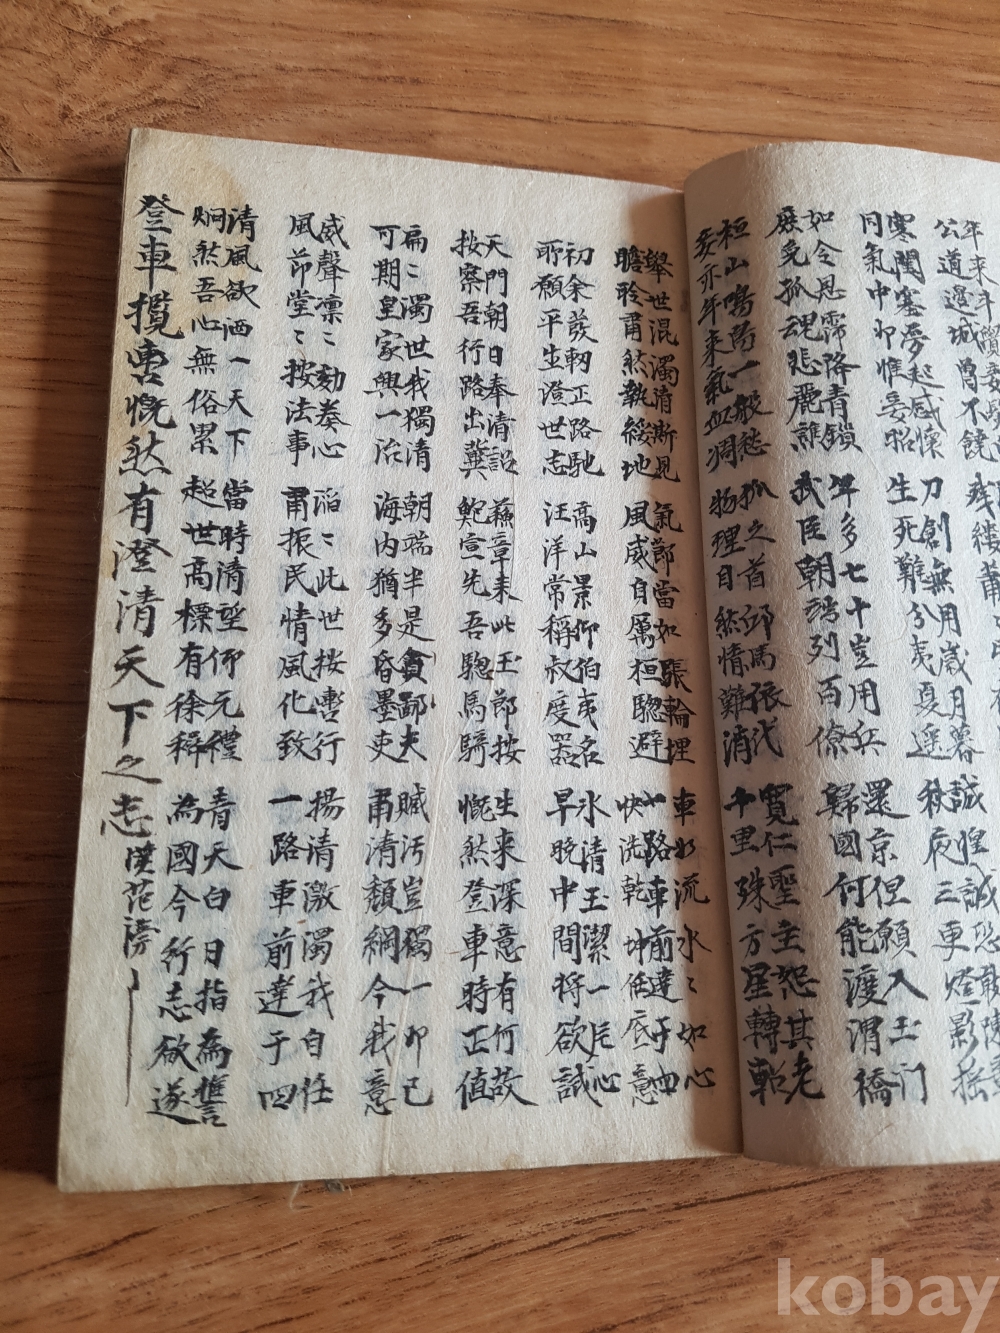 寒閨塞夢起感懷
月氣中卯惟妾昭
刀創無用歲月暮
生死難分夷夏遥
秋夜三更燈影搖
如令恩霈降青鎖
庶免孤魂悲麗譙
年多七十豈用兵
武臣朝誇列百僚
還京但願入玉門
歸國何能渡渭橋
桓山鳴荶一般愁
委亦年來氣血凋
狐之首邱馬依代
物理自然情難消
寛仁聖主恕其老
千里殊方星轉軺
擧世混濁清斯見
瞻聆肅然執綏地
氣節當如張輪埋
風威自厲桓驄避
車水流水〻如心
一路車前達于四
快洗乾坤任底意
初余發軔正路馳
所願平生澄世志
高山景仰伯夷名
汪洋常稱叔度器
水清玉潔一片心
早晩中間將欲試
天門朝日奉清詔
按察吾行路出冀
蘇章来此王郎按
鮑宣先吾驄馬騎
生来深意有何故
慨然登車時正值
扁〻濁世我獨清
可期皇家興一治
朝端半是貪鄙夫
海内猶多昏墨吏
贓汚豈獨一印已
肅清頽綱今我意
威聲凛〻劾奏心
風節堂〻按法事
滔〻此世按轡行
肅振民情風化致
揚清激濁我自任
一路車前達于四
清風欲洒一天下
炯然吾心無俗累
當時清望仰元禮
超世高標有徐穉
青天白日指為誓
為國今行志欲遂
登車攬轡慨然有澄清天下之志 漢范滂
kobay